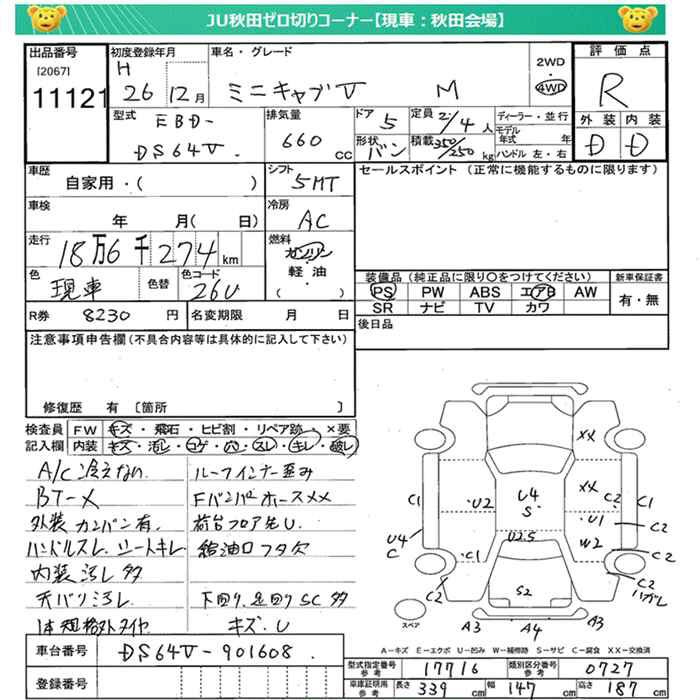 JU秋田ゼロ切りコーナー【現車：秋田会場】
出品番号
[2067]
11121
初度登録年月
H 26年 12月
車名・グレード
ミニキャブV M
2WD
4WD
評価点
R
外装 内装
D D
型式
EBD-
DS64V
排気量
660 cc
ドア 5
形状 バン
定員 2/4人
積載 350/250 kg
ディーラー・並行
モデル年式 年
ハンドル 左・右
車歴
自家用・( )
シフト
5MT
セールスポイント (正常に機能するものに限ります)
車検
年 月( 日)
冷房
AC
走行
18万6千274km
燃料
ガソリン
軽油
( )
色
現車
色替
色コード
26U
装備品(純正品に限り○をつけてください)
PS PW ABS エアB AW
SR ナビ TV カワ
新車保証書
有・無
R券 8230円
名変期限 月 日
後日品
注意事項申告欄(不具合内容等は具体的に記入して下さい)
修復歴 有 〔箇所 〕
検査員記入欄
FW キズ・飛石・ヒビ割・リペア跡・×要
内装 キズ・汚レ・コゲ・穴・スレ・キレ・破レ
A/C冷えない ルーフインナー歪み
BT-X Fバンパーホースメメ
外装カンバン有 荷台フロア先U
ハンドルスレ シートキレ 給油口フタ欠
内装汚レ多
天バリ汚レ 下回り、足回りSC多
1本規格外タイヤ キズ、U
XX
XX
C1
U2
U4
S
C2
C1
U1
C2
U4
C
C1
U2.5
W2
C2
C2
S2
C2
ハガレ
スペア
A3
A4
A3
A-キズ E-エクボ U-凹み W-補修跡 S-サビ C-腐食 XX-交換済
車台番号 DS64V-901608
登録番号
型式指定番号 参考 17716
類別区分番号 参考 0727
車庫証明用 参考 長さ 339cm 幅 147cm 高さ 187cm